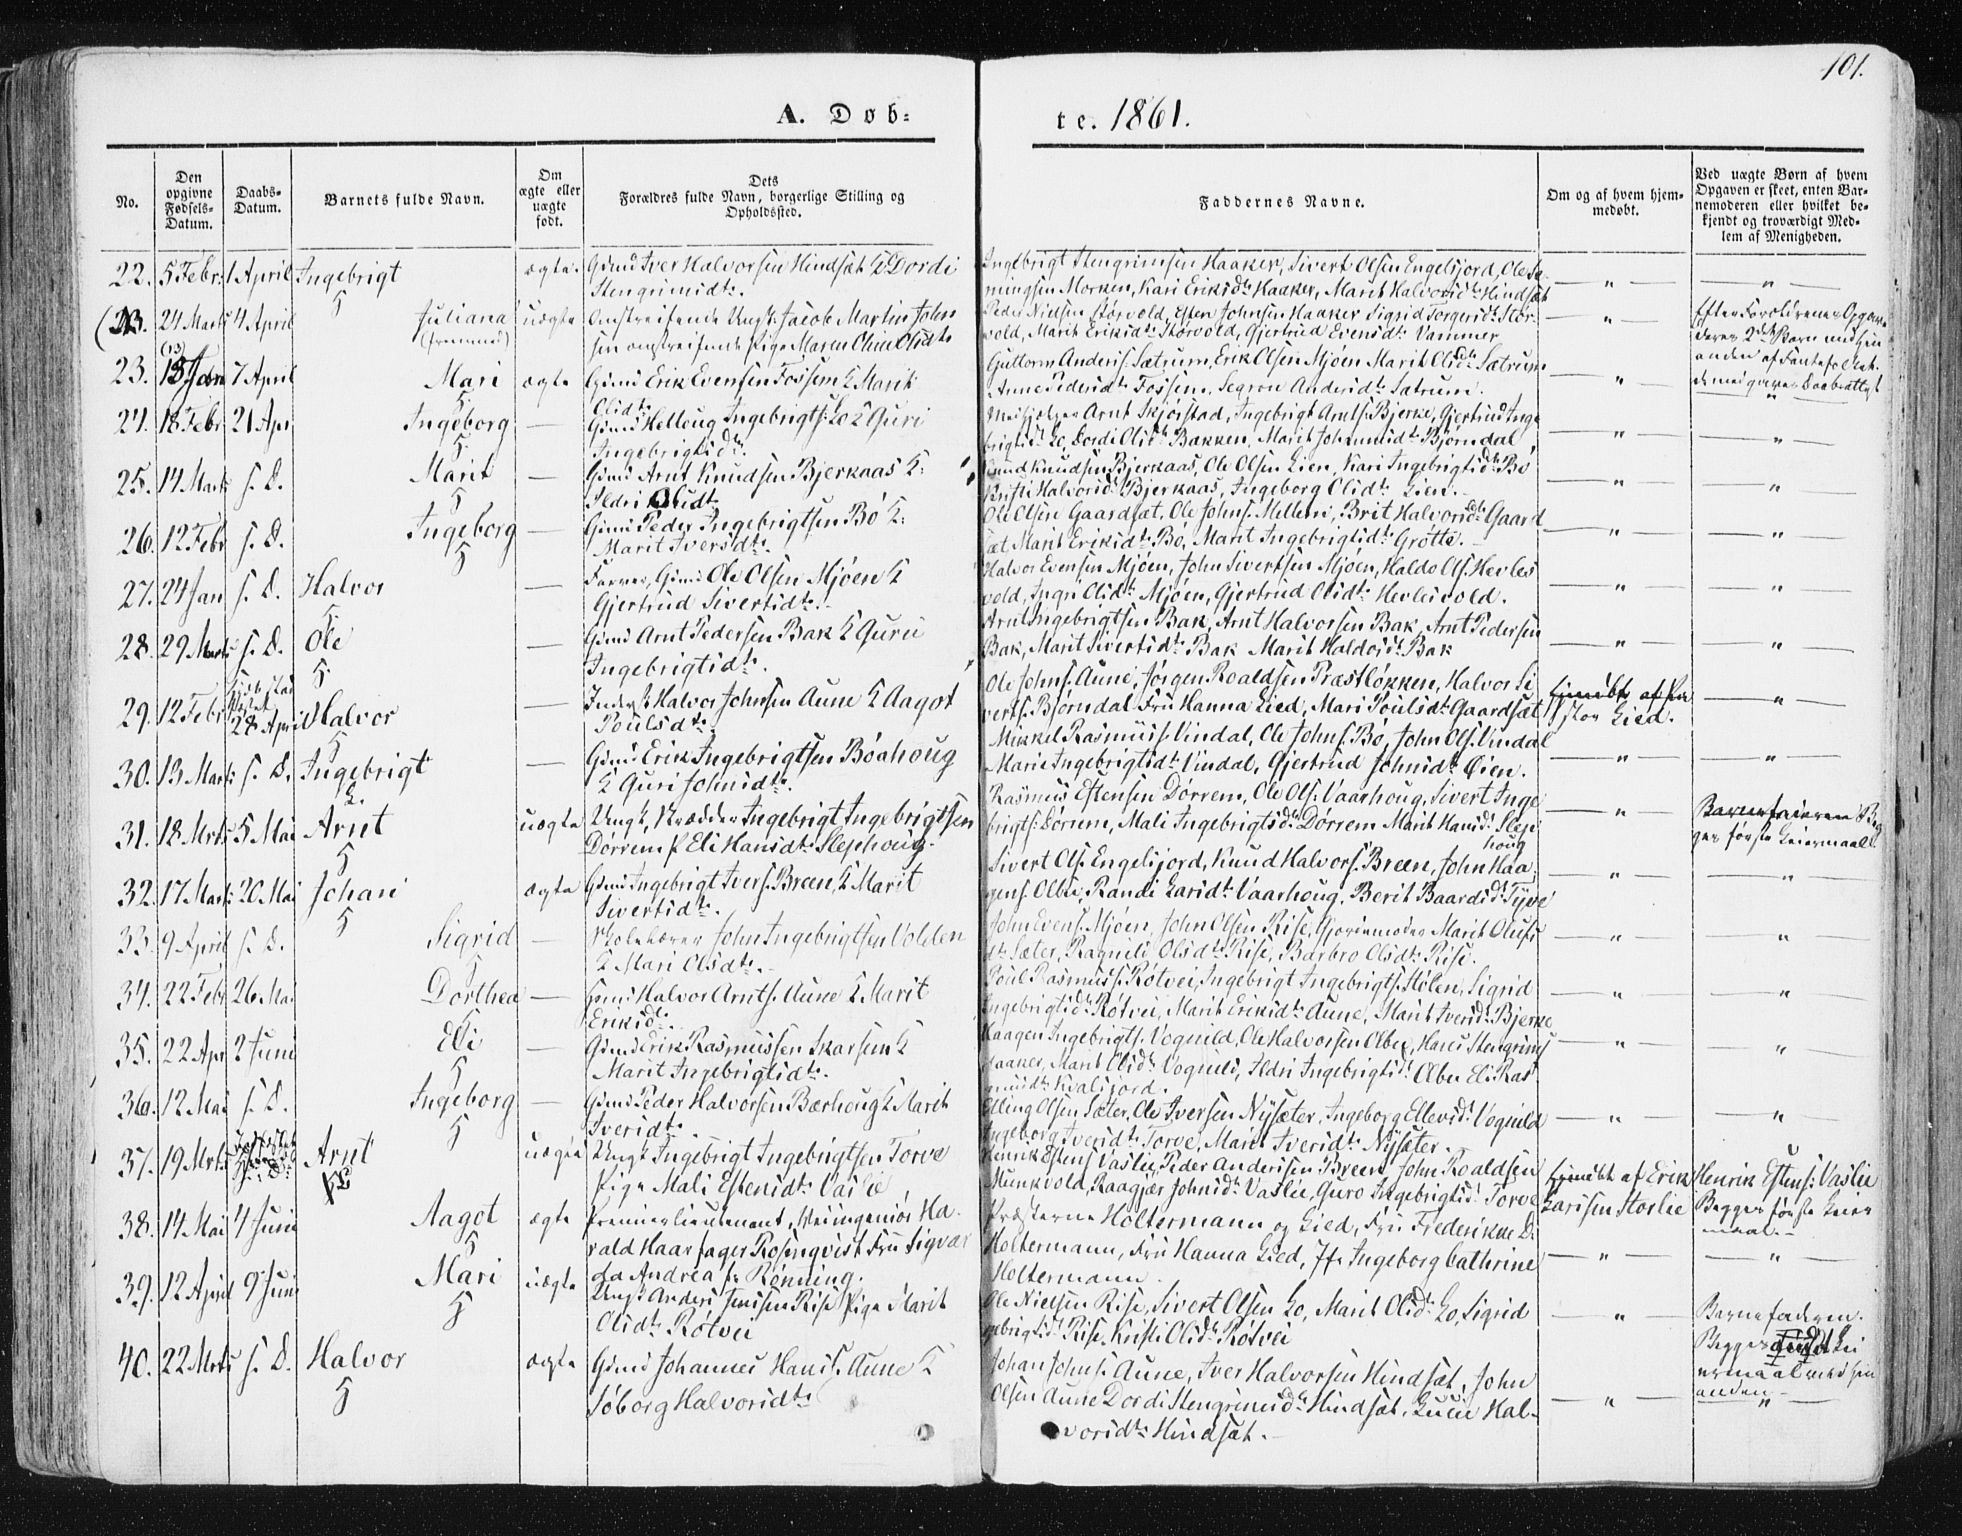 101.
A. Døb-
te. 1861.
No.
Den opgivne Fødsels-Datum.
Daabs-Datum.
Barnets fulde Navn.
Om ægte eller uægte født.
Dets Forældres fulde Navn, borgerlige Stilling og Opholdssted.
Faddernes Navne.
Om og af hvem hjem-medøbt.
Ved uægte Børn af hvem Opgaven er skeet, enten Bar-nemoderen eller hvilket be-kjendt og troværdigt Med-lem af Menigheden.
22. 5 Febr. 1 April Ingebrigt ægte. Gmd Iver Halvorsen Hindsæt & Dordi
Stengrimsdt.
Ingebrigt Stengrimsen Haaker, Sivert Olsen Engelsjord, Ole
mingsen Morken, Kari Eriksdt Haaker, Marit Halvorsdt Hindsæt
24 Marts 4 April Juliana uægte Omstreifende Ungk. Jacob Martin John
sen omstreifende Pige Maren Oline Olsdt
Peder Nielsen Størvold, Esten Johnsen Haaker Sigrid Torgersdt Stør-
vold, Marit Eriksdt Størvold, Gjertrud Evensdt Vammer
Efter Forældrenes Opgave
deres 2det Barn med hin
anden
23. 13 Jan 7 April Mari ægte Gmd Erik Evensen Fossem & Marit
Olsdt
Guttorm Anders. Sætrum, Erik Olsen Mjøen Marit Olsdt Sætrum
Anne Pedersdt Fossem, Segron Andersdt Sætrum.
24. 18 Febr 21 Apr Ingeborg — Gmd Helloug Ingebrigts. Lo & Guri
Ingebrigtsdt.
Arnt Skjørstad, Ingebrigt Arnts. Bjerke, Gjertrud Inge
brigtsdt Lo, Dordi Olsdt Bakken, Marit Johnsdt Bjørndal
25. 14 Marts s. D. Marit — Gmd Arnt Knudsen Bjerkaas &
Ildri Olsdt
Knud Knudsen Bjerkaas, Ole Olsen Lien, Kari Ingebrigtsdt Bø
Kristi Halvorsdt Bjerkaas, Ingeborg Olsdt Lien.
26. 12 Febr s. D. Ingeborg — Gmd Peder Ingebrigtsen Bø &
Marit Iversdt.
Ole Olsen Gaardsæt, Ole Johns. Mellem, Brit Halvorsdt Gaard
sæt Marit Eriksdt Bø, Marit Ingebrigtsdt Grøtte.
27. 24 Jan s. D. Halvor — Gmd Ole Olsen Mjøen &
Gjertrud Sivertsdt.
Halvor Evensen Mjøen, John Sivertsen Mjøen, Haldo Ols. Hevles
vold, Ingri Olsdt Mjøen, Gjertrud Olsdt Hevlesvold.
28. 29 Marts s. D. Ole — Gmd Arnt Pedersen Bak & Guru
Ingebrigtsdt.
Arnt Ingebrigtsen Bak, Arnt Halvorsen Bak, Arnt Pedersen
Bak, Marit Sivertsdt Bak Marit Haldosdt Bak
29. 12 Febr 28 April Halvor — Inderst Halvor Johnsen Aune & Aagot
Poulsdt.
Ole Johns. Aune, Jørgen Roaldsen Præstløkken, Halvor Si
verts. Bjørndal Fru Hanna Lied, Mari Poulsdt Gaardsæt
hjmdbt af Pa
stor Lied.
30. 13 Marts s. D. Ingebrigt — Gmd Erik Ingebrigtsen Bøahoug
& Guri Johnsdt.
Mikkel Rasmus. Vindal, Ole Johns. Bø, John Ols. Vindal
Mari Ingebrigtsdt Vindal, Gjertrud Johnsdt Øien.
31. 18 Mrts 5 Mai Arnt uægte Ungk. Skrædder Ingebrigt Ingebrigtsen
Dørrem P. Eli Hansdt Slephoug.
Rasmus Estensen Dørrem, Ole Ols. Vaarhoug, Sivert Inge
brigts. Dørrem, Mali Ingebrigtsdt Dørrem Marit Hansdt Slep
houg
Barnefaderen Beg
ges første Leiermaal
32. 17 Marts 20 Mai Johan ægte Gmd Ingebrigt Ivers. Breen, & Marit
Sivertsdt.
Sivert Ols. Engelsjord, Knud Halvors. Breen, John Haa
gens. Olbu, Randi Larsdt Vaarhoug, Berit Baardsdt Tyve
33. 9 April s. D. Sigrid — Skolelærer John Ingebrigtsen Volden
& Mari Olsdt.
John Evens. Mjøen, John Olsen Rise, Gjordemoder Marit Olufs
dt. Sæter, Ragnild Olsdt Rise, Barbro Olsdt Rise.
34. 22 Febr 26 Mai Dorthea — Gmd Halvor Arnts. Aune & Marit
Eriksdt.
Poul Rasmuss. Røtvei, Ingebrigt Ingebrigts. Hølen, Sigrid
Ingebrigtsdt Røtvei, Marit Eriksdt Aune, Marit Iversdt Bjerke
35. 22 Apr 2 Juni Eli — Gmd Erik Rasmussen Skarsem &
Marit Ingebrigtsdt.
Haagen Ingebrigts. Vognild, Ole Halvorsen Olbu, Hans Stengrims
Haaker, Marit Olsdt Vognild, Ildri Ingebrigtsdt Olbu Eli Ras
musdt Kvalsjord.
36. 12 Mai s. D. Ingeborg — Gmd Peder Halvorsen Bærhoug & Marit
Iversdt.
Elling Olsen Sæter, Ole Iversen Nysæter, Ingeborg Ellevsdt Vognild
Ingeborg Iversdt Torve, Marit Iversdt Nysæter.
37. 19 Mrts Arnt uægte Ungk. Ingebrigt Ingebrigtsen Torve
Pige Mali Estensdt Vaslie
Henrik Estens. Vaslie, Peder Andersen Breen, John Roaldsen
Munkvold, Raagjær Johnsdt Vaslie, Guro Ingebrigtsdt Torve
hjmdbt af Erik
Larsen Storlie
Henrik Estens. Vaslie
Begges første Leier
maal.
38. 14 Mai 4 Juni Aagot ægte Premierlieutenant, Veiingeniør Ha-
rald Haarfager Rosenqvist Fru Sigvar
da Andrea f. Rønning.
Præsterne Holtermann og Lied, Fru Frederikke D.
Holtermann, Fru Hanna Lied, Jfr Ingeborg Cathrine
Holtermann.
39. 12 April 9 Juni Mari uægte Ungk. Anders Jensen Rise Pige Marit
Olsdt. Røtvei
Ole Nielsen Rise, Sivert Olsen Lo, Marit Olsdt Lo, Sigrid
gebrigtsdt Rise, Kristi Olsdt Røtvei
Barnefaderen.
Begges Lei
ermaal med hin
anden
40. 22 Mrts s. D. Halvor ægte Gmd Johannes Hans. Aune &
Søborg Halvorsdt.
Johan Johns. Aune, Iver Halvorsen Hindsæt, John
Olsen Aune Dordi Stengrimsdt Hindsæt, Lucie Hal-
vorsdt Hindsæt.